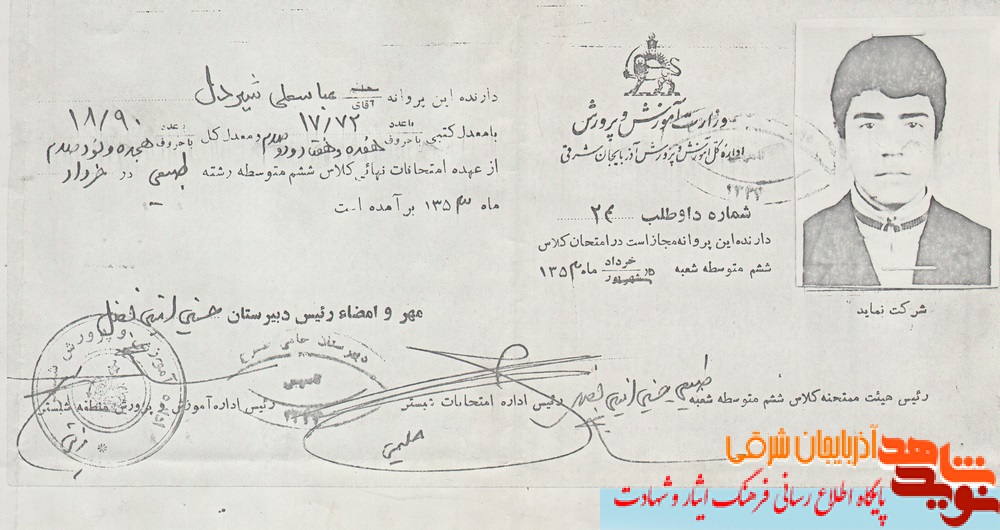 وزارت آموزش و پرورش
اداره کل آموزش و پرورش آذربایجان شرقی
شماره داوطلب ۲۴
دارنده این پروانه مجاز است در امتحان کلاس
ششم متوسطه شعبه در خرداد شهریور ماه ۱۳۵۳
شرکت نماید
رئیس هیئت ممتحنه کلاس ششم متوسطه شعبه طبیعی
دارنده این پروانه آقای عباسعلی شیردل
بامعدل کتبی باعدد ۱۷/۷۲ باحروف هفده و هفتاد و دو صدم و معدل کل باعدد ۱۸/۹۰ باحروف هجده و نود صدم
از عهده امتحانات نهائی کلاس ششم متوسطه رشته طبیعی در خرداد
ماه ۱۳۵۳ برآمده است
مهر و امضاء رئیس دبیرستان
دبیرستان
رئیس اداره امتحانات شبستر
رئیس اداره آموزش و پرورش منطقه شبستر
آموزش و پرورش
نوید شاهد آذربایجان شرقی
پایگاه اطلاع رسانی فرهنگ ایثار و شهادت